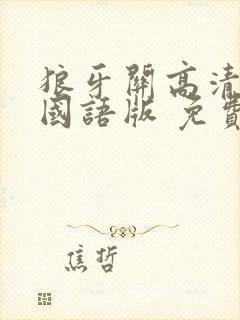 狼牙關高清
國語版 免費
焦哲